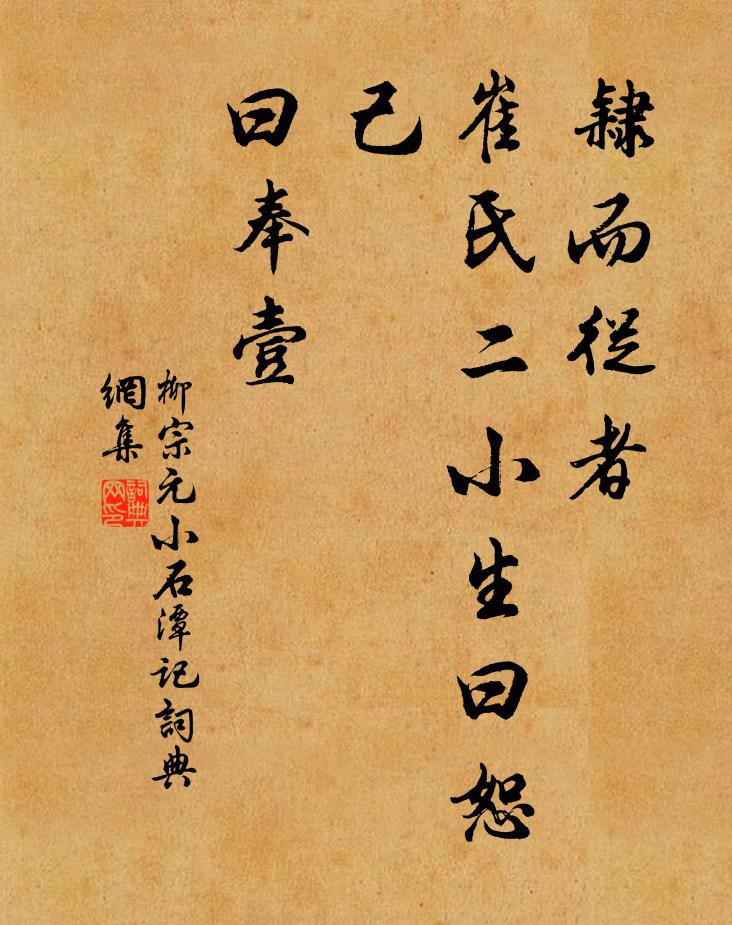 隸而從者
崔氏二小生曰恕
己
曰奉壹
柳宗元小石潭記詞典
網集
詞典
网印